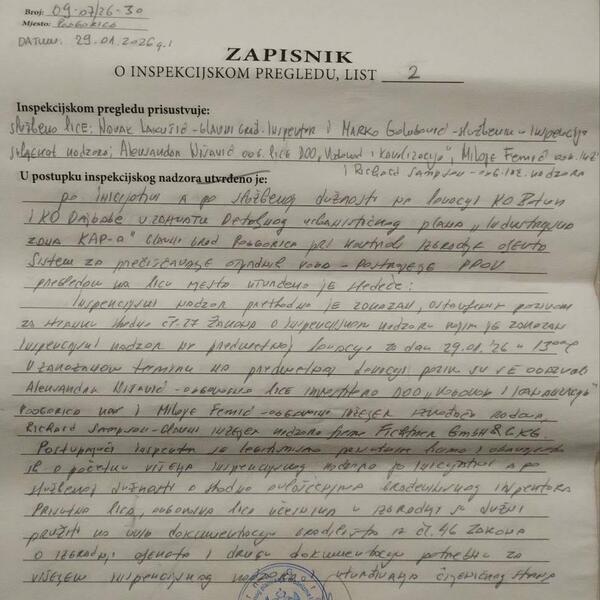 Broj: 09-07/26-30
Mjesto: PODGORICA
DATUM: 29.01.2026g.
ZAPISNIK
O INSPEKCIJSKOM PREGLEDU, LIST 2
Inspekcijskom pregledu prisustvuje:
Službeno lice: Novak Lakušić - Glavni grad. Inspektor i Marko Golubović - službenik - Inspekcije
Subjekat nadzora: Aleksandar Nišavić odg. lice DOO "Vodovod i kanalizacija", Miloje Femić odg. inž
i Richard Sampson - odg. inž. nadzora
U postupku inspekcijskog nadzora utvrđeno je:
po inicijativi a po službenoj dužnosti na lokaciji KO Botun
i KO Dajbabe u zahvatu Detaljnog urbanističkog plana "Industrijska
zona KAP-a" Glavni grad Podgorica pri kontroli izgradnje objekta
Sistem za prečišćavanje otpadnih voda - Postrojenje PPOV
pregledom na licu mjesta utvrđeno je sledeće:
Inspekcijski nadzor prethodno je zakazan, ostavljenim pozivom
za stranku shodno čl. 27 Zakona o inspekcijskom nadzoru kojim je zakazan
inspekcijski nadzor na predmetnoj lokaciji za dan 29.01.'26 u 13
U zakazanom terminu na predmetnoj lokaciji poziv su se odazvali
Aleksandar Nišavić - odgovorno lice investitora DOO "Vodovod i kanalizacija"
Podgorica i Miloje Femić - odgovorni inžinjer izvođača radova,
Richard Sampson - Glavni inžinjer nadzora firme Fichtner GmbH & CKG.
Postupajući inspektor se legitimisao prisutnima i obavijestio
ih o početku vršenja inspekcijskog nadzora po inicijativi a po
službenoj dužnosti a shodno ovlašćenjima građevinskog inspektora
Prisutna lica, odgovorna lica učesnika u izgradnji su dužni
pružiti na uvid dokumentaciju gradilišta iz čl. 46 Zakona
o izgradnji objekata i drugu dokumentaciju potrebnu za
vršenje inspekcijskog nadzora i utvrđivanja činjeničnog stanja